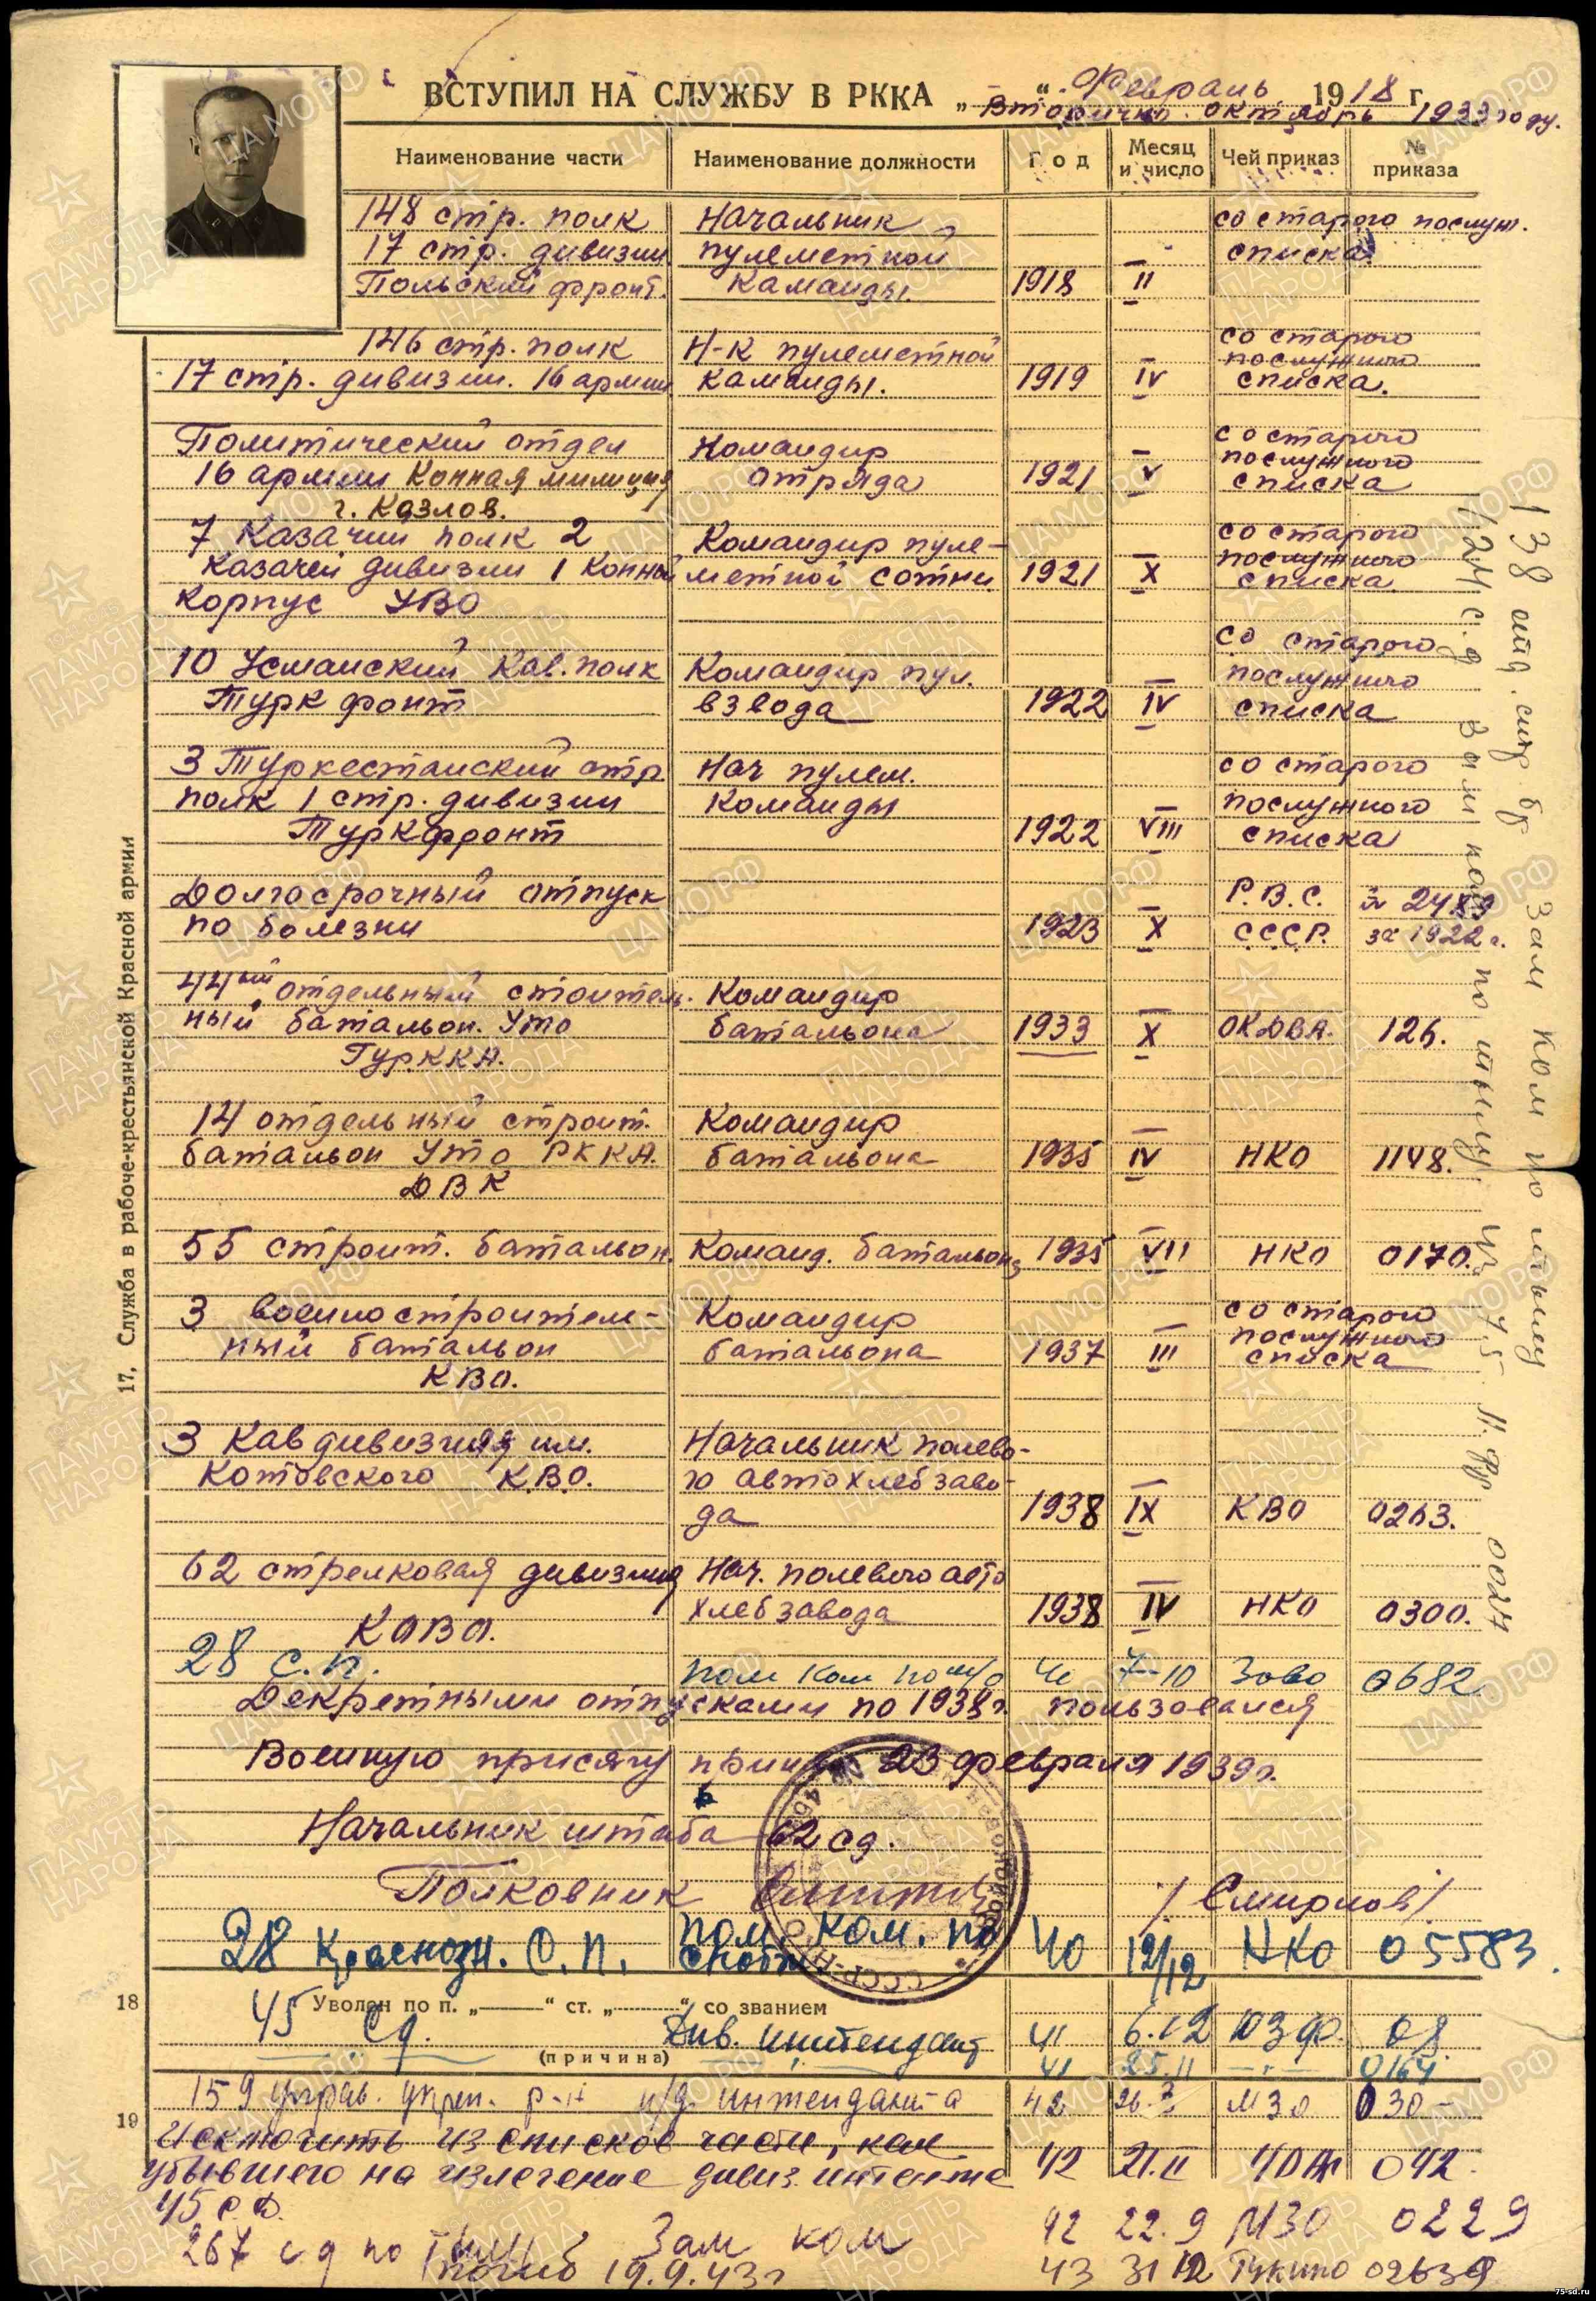 ВСТУПИЛ НА СЛУЖБУ В РККА „ “ Февраль 1918 г.
Вторично. октябрь 1933 году.
Наименование части Наименование должности Год Месяц и число Чей приказ № приказа
148 стр. полк Начальник со старого послуж.
17 стр. дивизии пулеметной списка
Польский фронт. каманды. 1918 II
146 стр. полк Н-к пулеметной со старого
послужного
17 стр. дивизии. 16 армии каманды. 1919 IV списка.
Политический отдел Командир со старого
послужного
16 армии Конная милиция отряда 1921 V списка
г. Козлов.
7 Казачий полк 2 Командир пуле- со старого
послужного
Казачей дивизии 1 Конный метной сотни 1921 X списка
Корпус УВО
со старого
10 Усманский Кав. полк Командир пул. послужного
Турк фонт взвода 1922 IV списка
3 Туркестанский стр. Нач пулем. со старого
полк 1 стр. дивизии команды послужного
Туркфронт 1922 VIII списка
Долгосрочный отпуск Р.В.С.
по болезни 1923 X СССР. за 1922 г.
44ый отдельный стоитель- Командир
ный батальон. Уто батальона 1933 X ОКДВА. 126.
ГУРККА.
14 отдельный строит. Командир
батальон Уто РККА. батальона 1935 IV НКО 1148.
ДВК
55 строит. батальон. Команд. батальона 1935 VII НКО 0170.
3 военностроитель- Командир со старого
послужного
ный батальон батальона 1937 III списка
КВО.
3 Кавдивизия им. Начальник полево-
Котовского К.В.О. го автохлебзаво-
да 1938 IX КВО 0263.
62 стрелковая дивизия Нач. полевого авто
хлебзавода 1938 IV НКО 0300.
КОВО.
28 с.п. пом ком по м/о 40 7-10 Зово 0682
Декретными отпусками по 1938 г. пользовался
Военную присягу принял 23 февраля 1939 г.
Начальник штаба 62 сд.
Полковник /Смирнов/
28 Краснозн. С.П. пом. ком. по снабж. 40 12/12 НКО 05583.
18 Уволен по п. „ “ ст. „ “, со званием
45 сд. Див. интендант 41 6.12 ЮЗФ. 08.
(причина) 41 25.11 0164
159 управ. укреп. р-н и/д интенданта 42 26. МЗО 030
19
Исключить из списков части, как 42 21.II ЮЖ 042
убывшего на излечение дивиз. интенте
45 с.д. 42 22.9 МЗО 0229
267 сд по тылу Зам ком
погиб 19.9.43 г 43 31 12 02639
17. Служба в рабоче-крестьянской Красной армии
138 отд. стр бр зам ком по тылу
124 с.д зам ком по тылу
ПАМЯТЬ НАРОДА
ЦАМО РФ
75-sd.ru